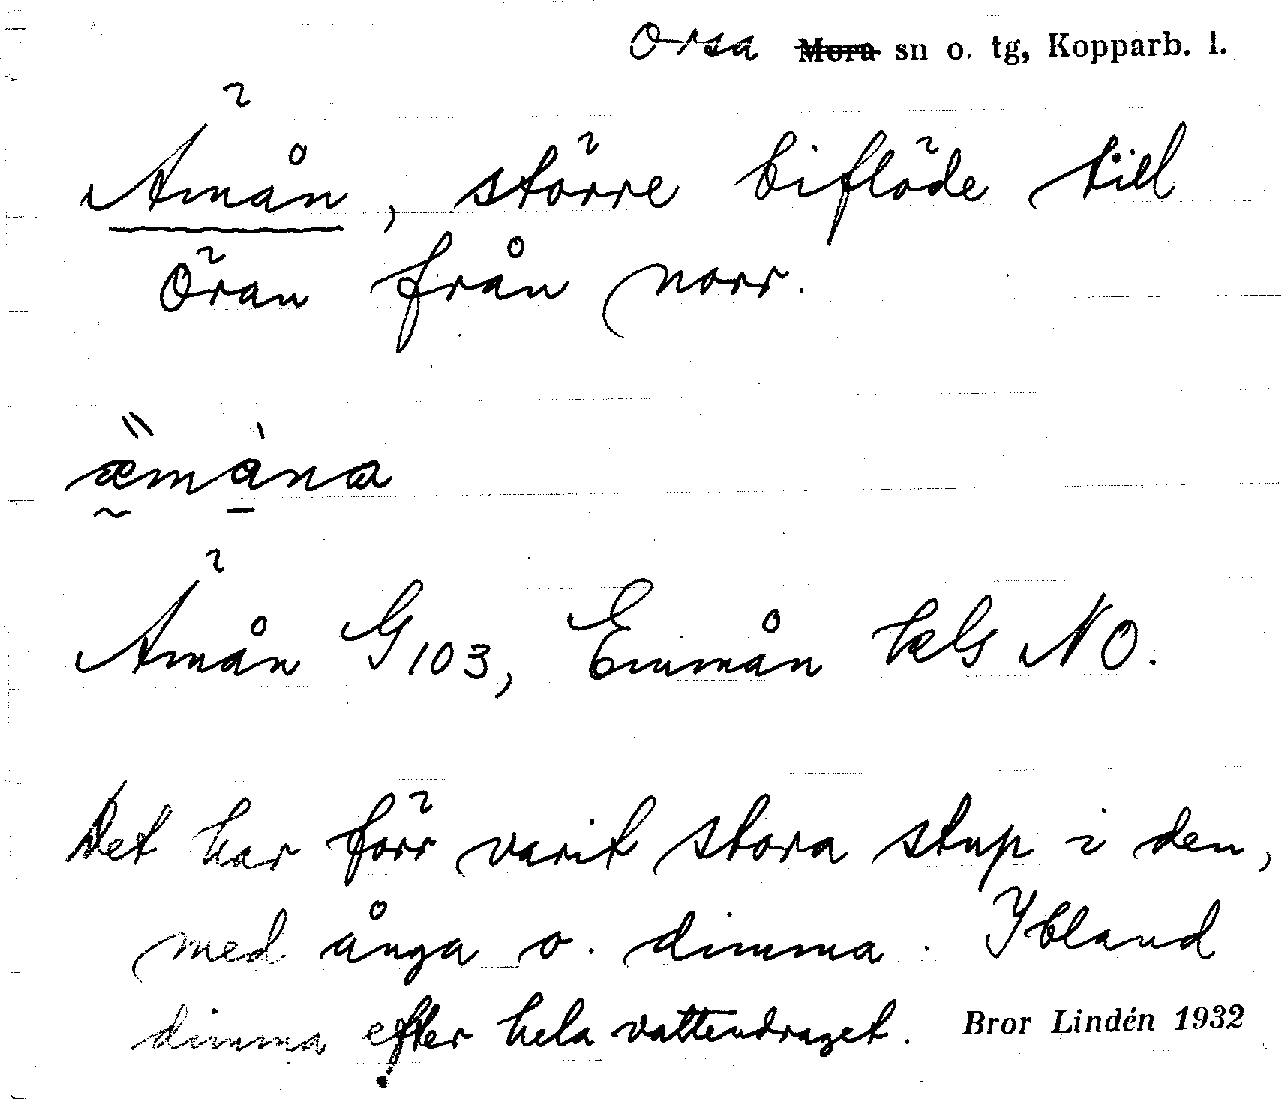 Orsa Mora sn o. tg, Kopparb. l.
Ämån, större biflöde till
Öran från norr.
ämåna
Ämån G103, Emmån hels NO.
Det har förr varit stora stup i den,
med ånga o. dimma. Ibland
dimma efter hela vattendraget. Bror Lindén 1932